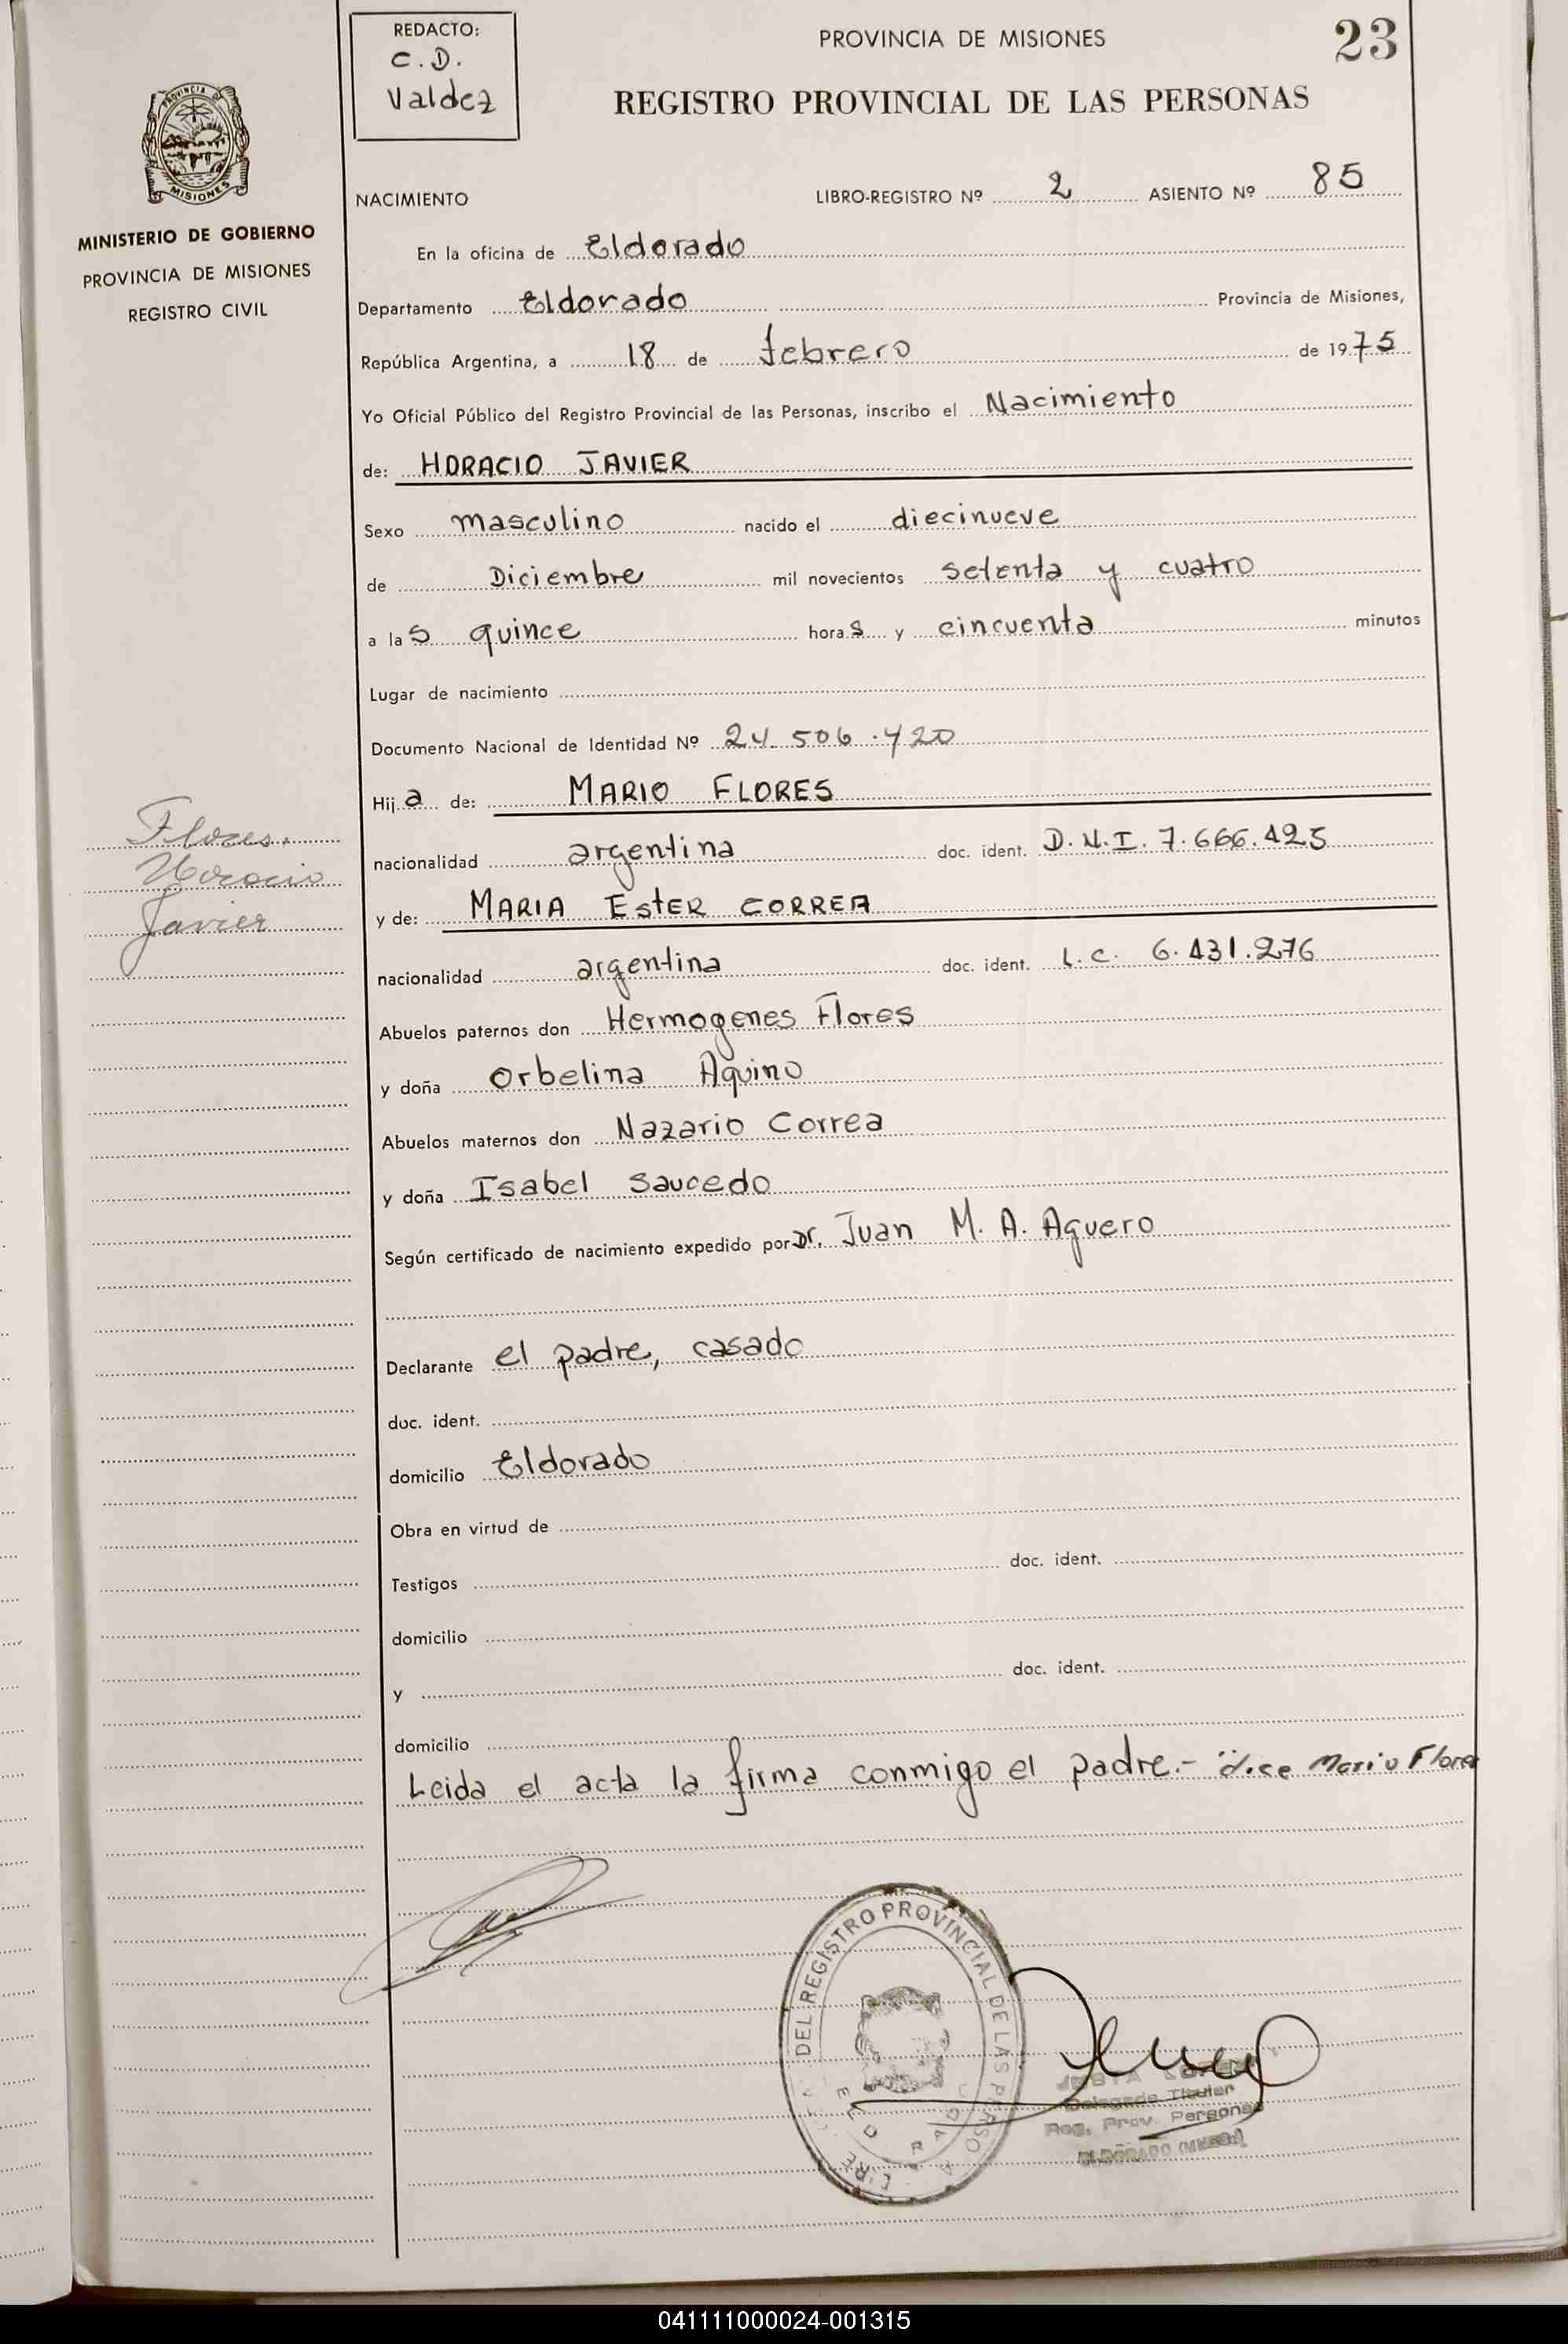 REDACTO:
C.D.
Valdez
PROVINCIA DE MISIONES
23
REGISTRO PROVINCIAL DE LAS PERSONAS
PROVINCIA DE
MISIONES
MINISTERIO DE GOBIERNO
PROVINCIA DE MISIONES
REGISTRO CIVIL
NACIMIENTO LIBRO-REGISTRO Nº 2 ASIENTO Nº 85
En la oficina de Eldorado
Departamento Eldorado Provincia de Misiones,
República Argentina, a 18 de febrero de 1975
Yo Oficial Público del Registro Provincial de las Personas, inscribo el Nacimiento
de: HORACIO JAVIER
Sexo masculino nacido el diecinueve
de Diciembre mil novecientos setenta y cuatro
a las quince horas y cincuenta minutos
Lugar de nacimiento
Documento Nacional de Identidad Nº 24.506.420
Hija de: MARIO FLORES
Flores.
Horacio
Javier
nacionalidad argentina doc. ident. D.N.I. 7.666.425
y de: MARIA EstER CORREA
nacionalidad argentina doc. ident. L.C. 6.431.276
Abuelos paternos don Hermogenes Flores
y doña Orbelina Aquino
Abuelos maternos don Nazario Correa
y doña Isabel Saucedo
Según certificado de nacimiento expedido por Dr. Juan M. A. Aguero
Declarante el padre, casado
doc. ident.
domicilio Eldorado
Obra en virtud de
Testigos doc. ident.
domicilio
y doc. ident.
domicilio
Leida el acta la firma conmigo el padre.- dice Mario Flores
DEL REGISTRO PROVINCIAL DE LAS PERSONAS
ELDORADO
Delegada Titular
Reg. Prov. Personas
ELDORADO
041111000024-001315